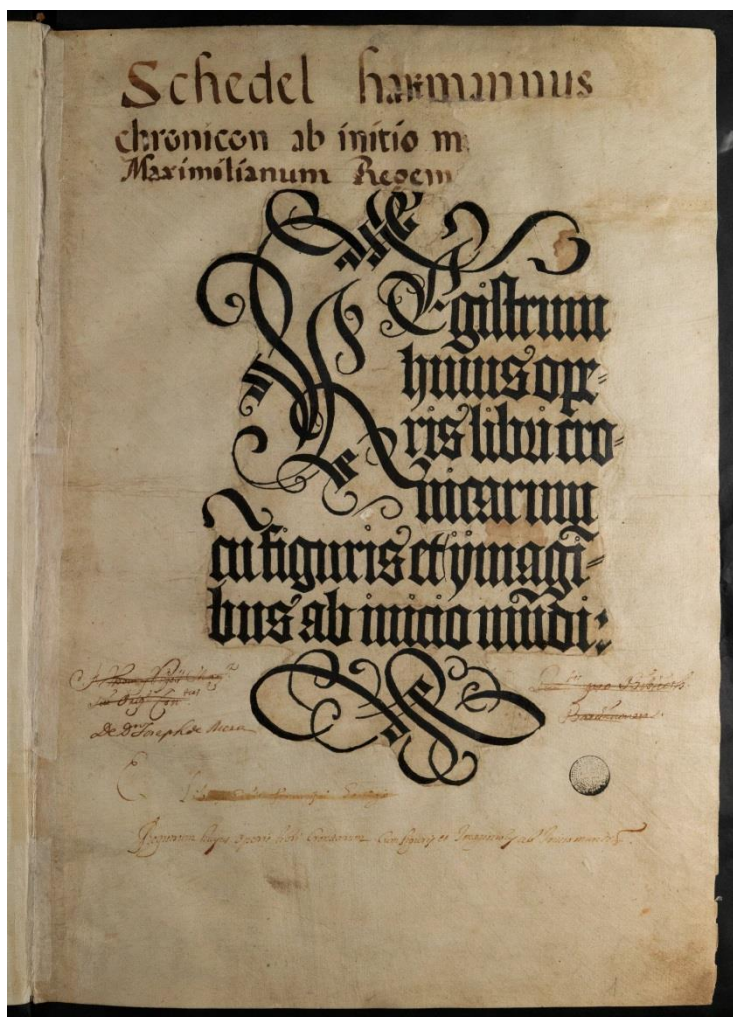 Schedel harmannus
chronicon ab initio m
Maximilianum Regem
REgistrum
huius ope-
ris libri cro-
nicarum
cũ figuris et ymagi-
bus ab inicio mũdi:
De Dn Joseph de
Registrum hujus operis libri Cronicarum Cum figuris et Imaginibus ab Inicio mundi